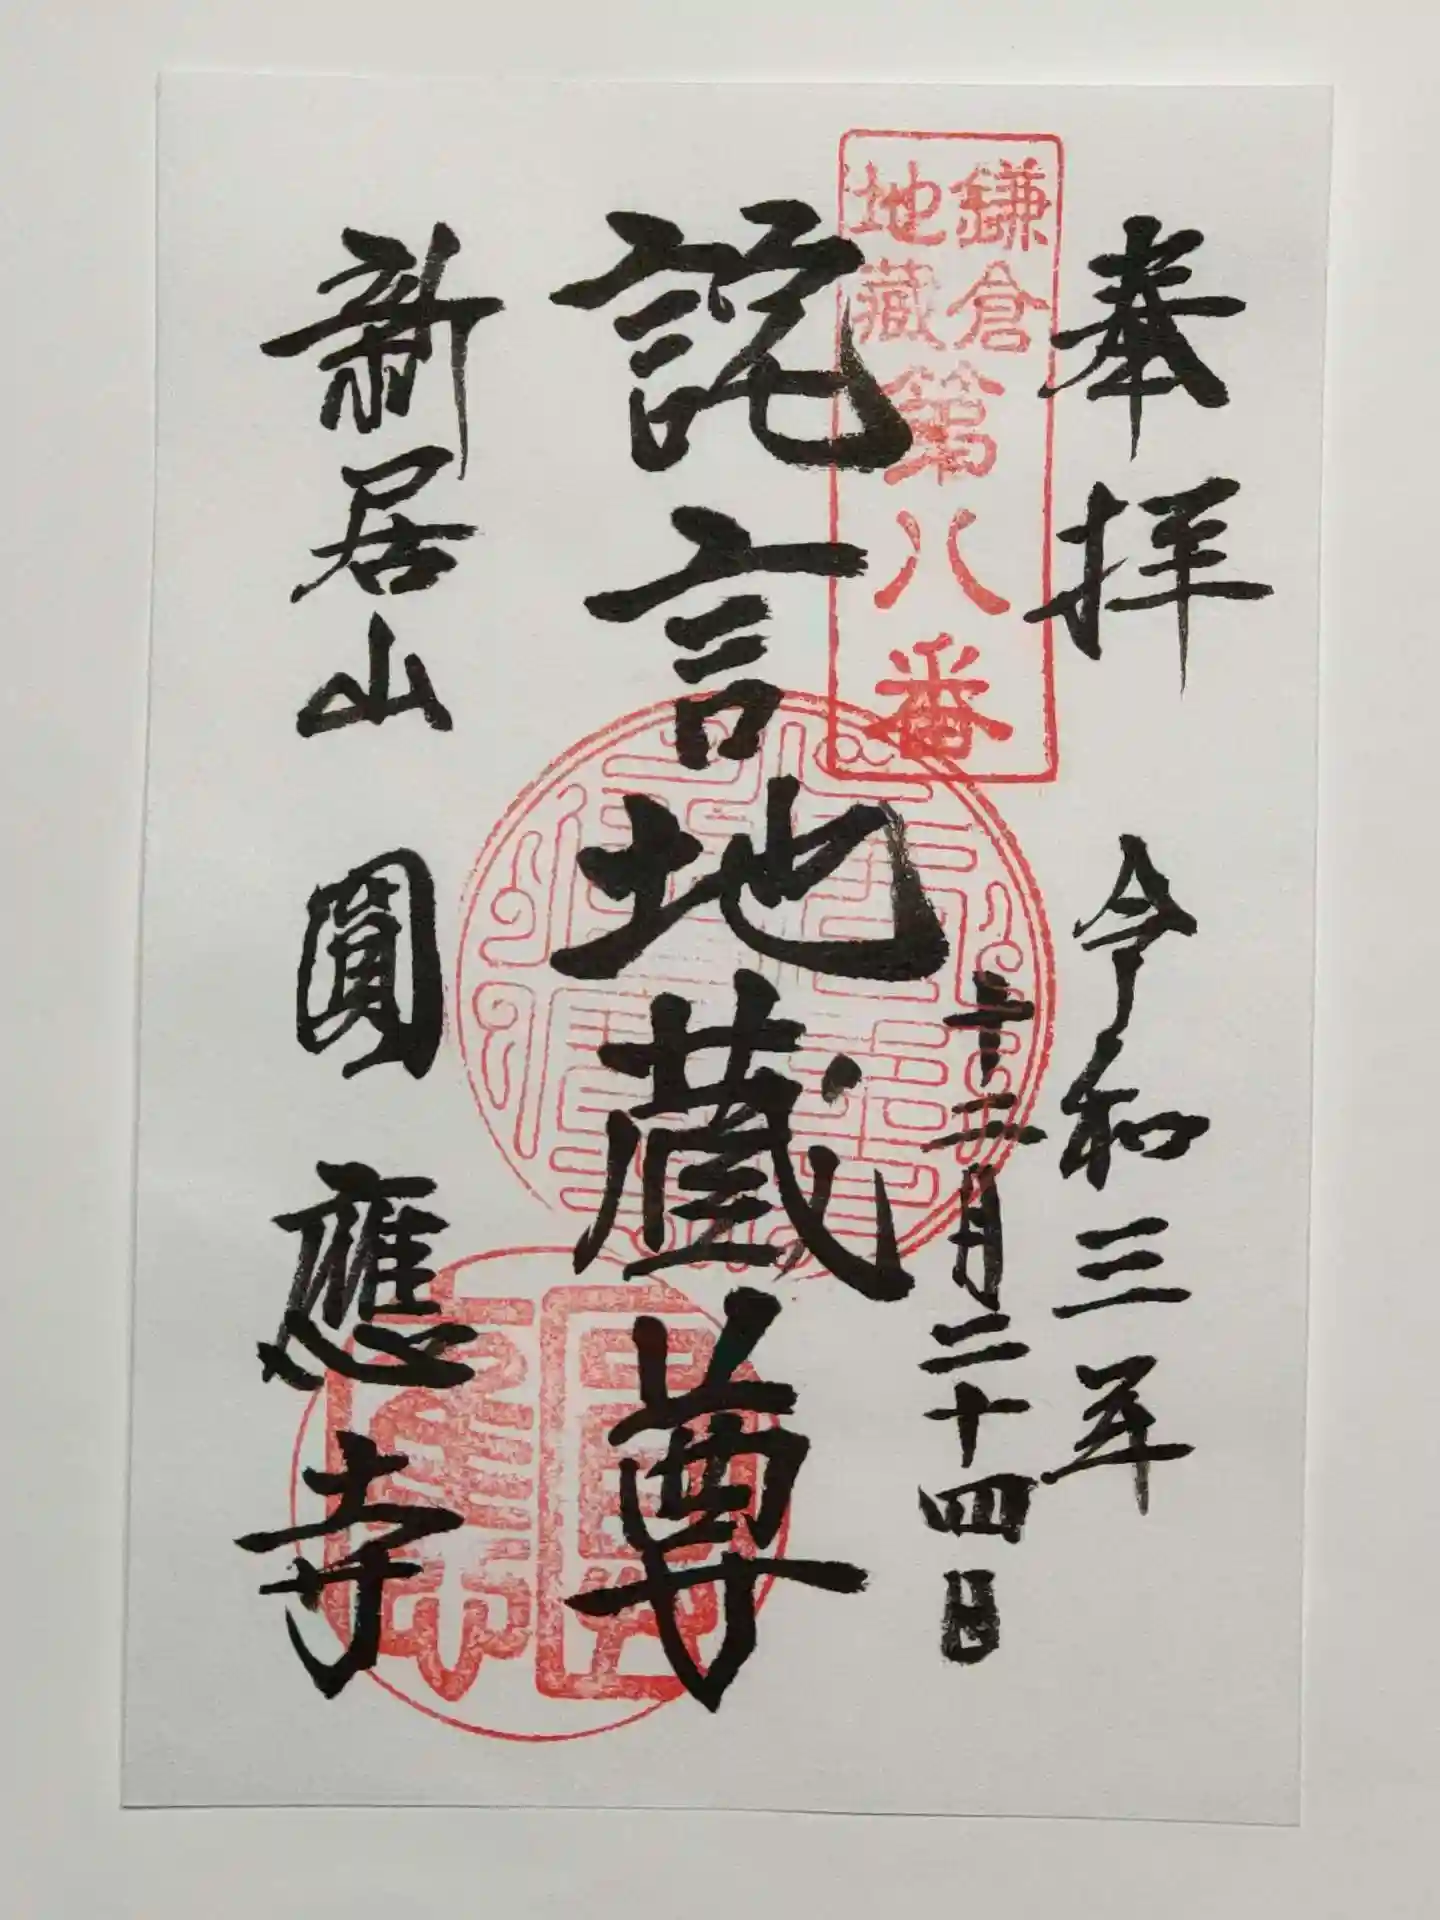 奉拝　令和三年
十二月二十四日
鎌倉
地蔵
第八番
詫言地蔵尊
新居山　圓應寺